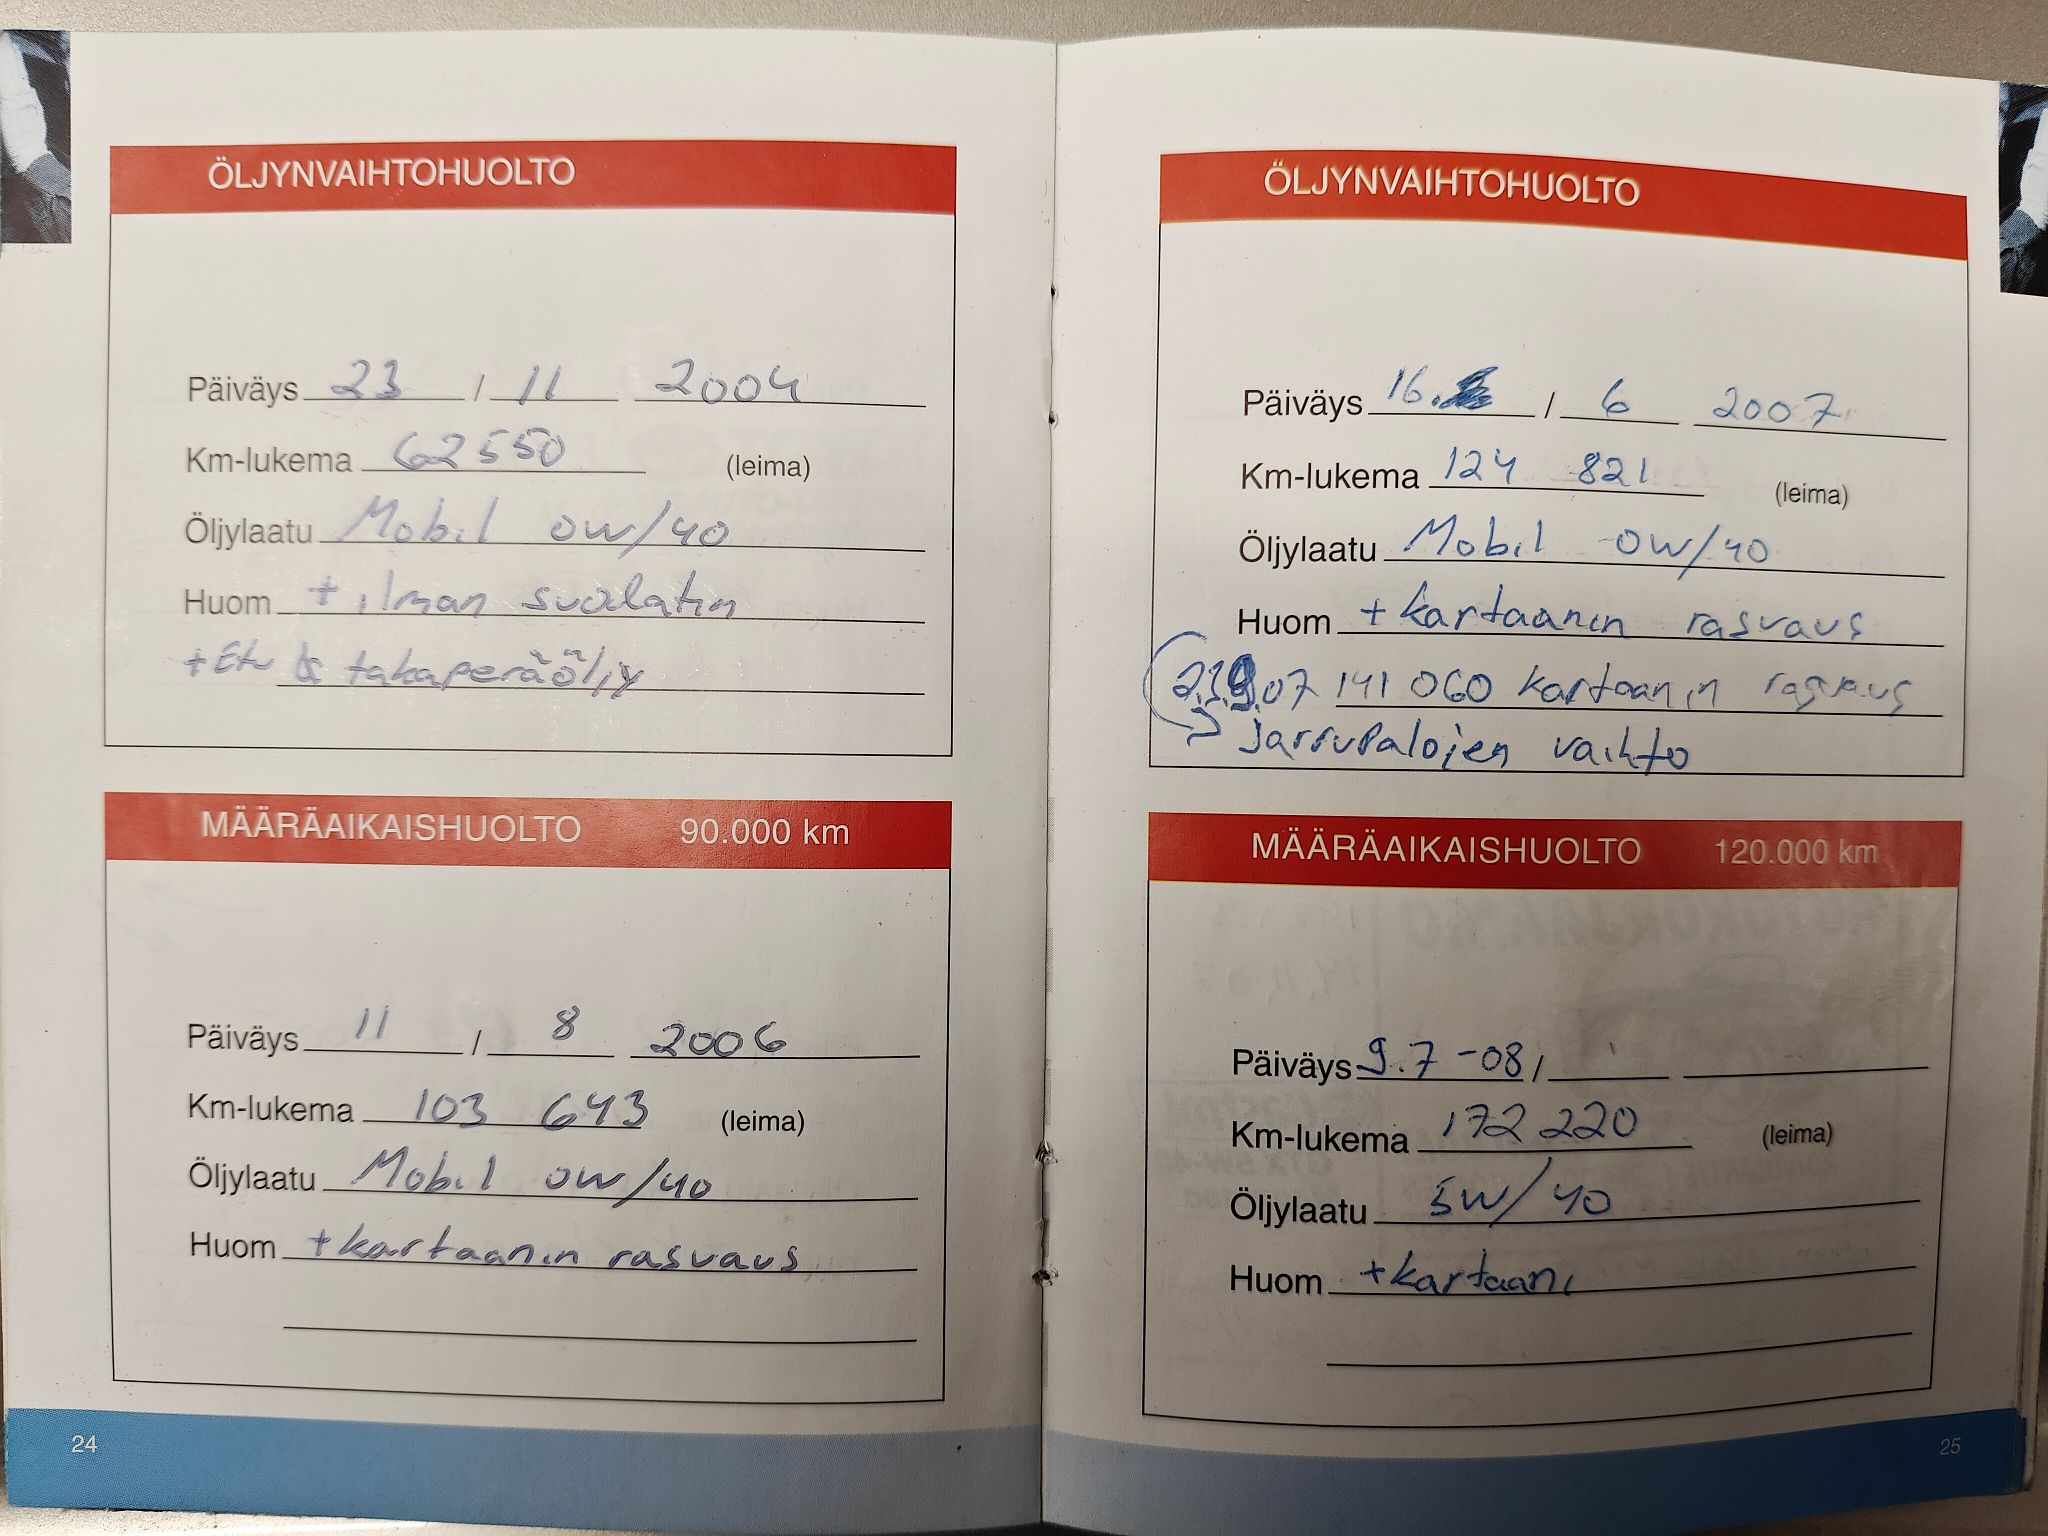 ÖLJYNVAIHTOHUOLTO
Päiväys 23 / 11 2004
Km-lukema 62550 (leima)
Öljylaatu Mobil 0W/40
Huom + ilman suodatin
+ Etu & takaperäöljy
MÄÄRÄAIKAISHUOLTO 90.000 km
Päiväys 11 / 8 2006
Km-lukema 103 643 (leima)
Öljylaatu Mobil 0W/40
Huom + kartaanin rasvaus
24
ÖLJYNVAIHTOHUOLTO
Päiväys 16. / 6 2007
Km-lukema 124 821 (leima)
Öljylaatu Mobil 0W/40
Huom + kartaanin rasvaus
141 060 kartaanin rasvaus
Jarrupalojen vaihto
MÄÄRÄAIKAISHUOLTO 120.000 km
Päiväys 9.7 -08 /
Km-lukema 172 220 (leima)
Öljylaatu 5W/40
Huom + kartaani
25